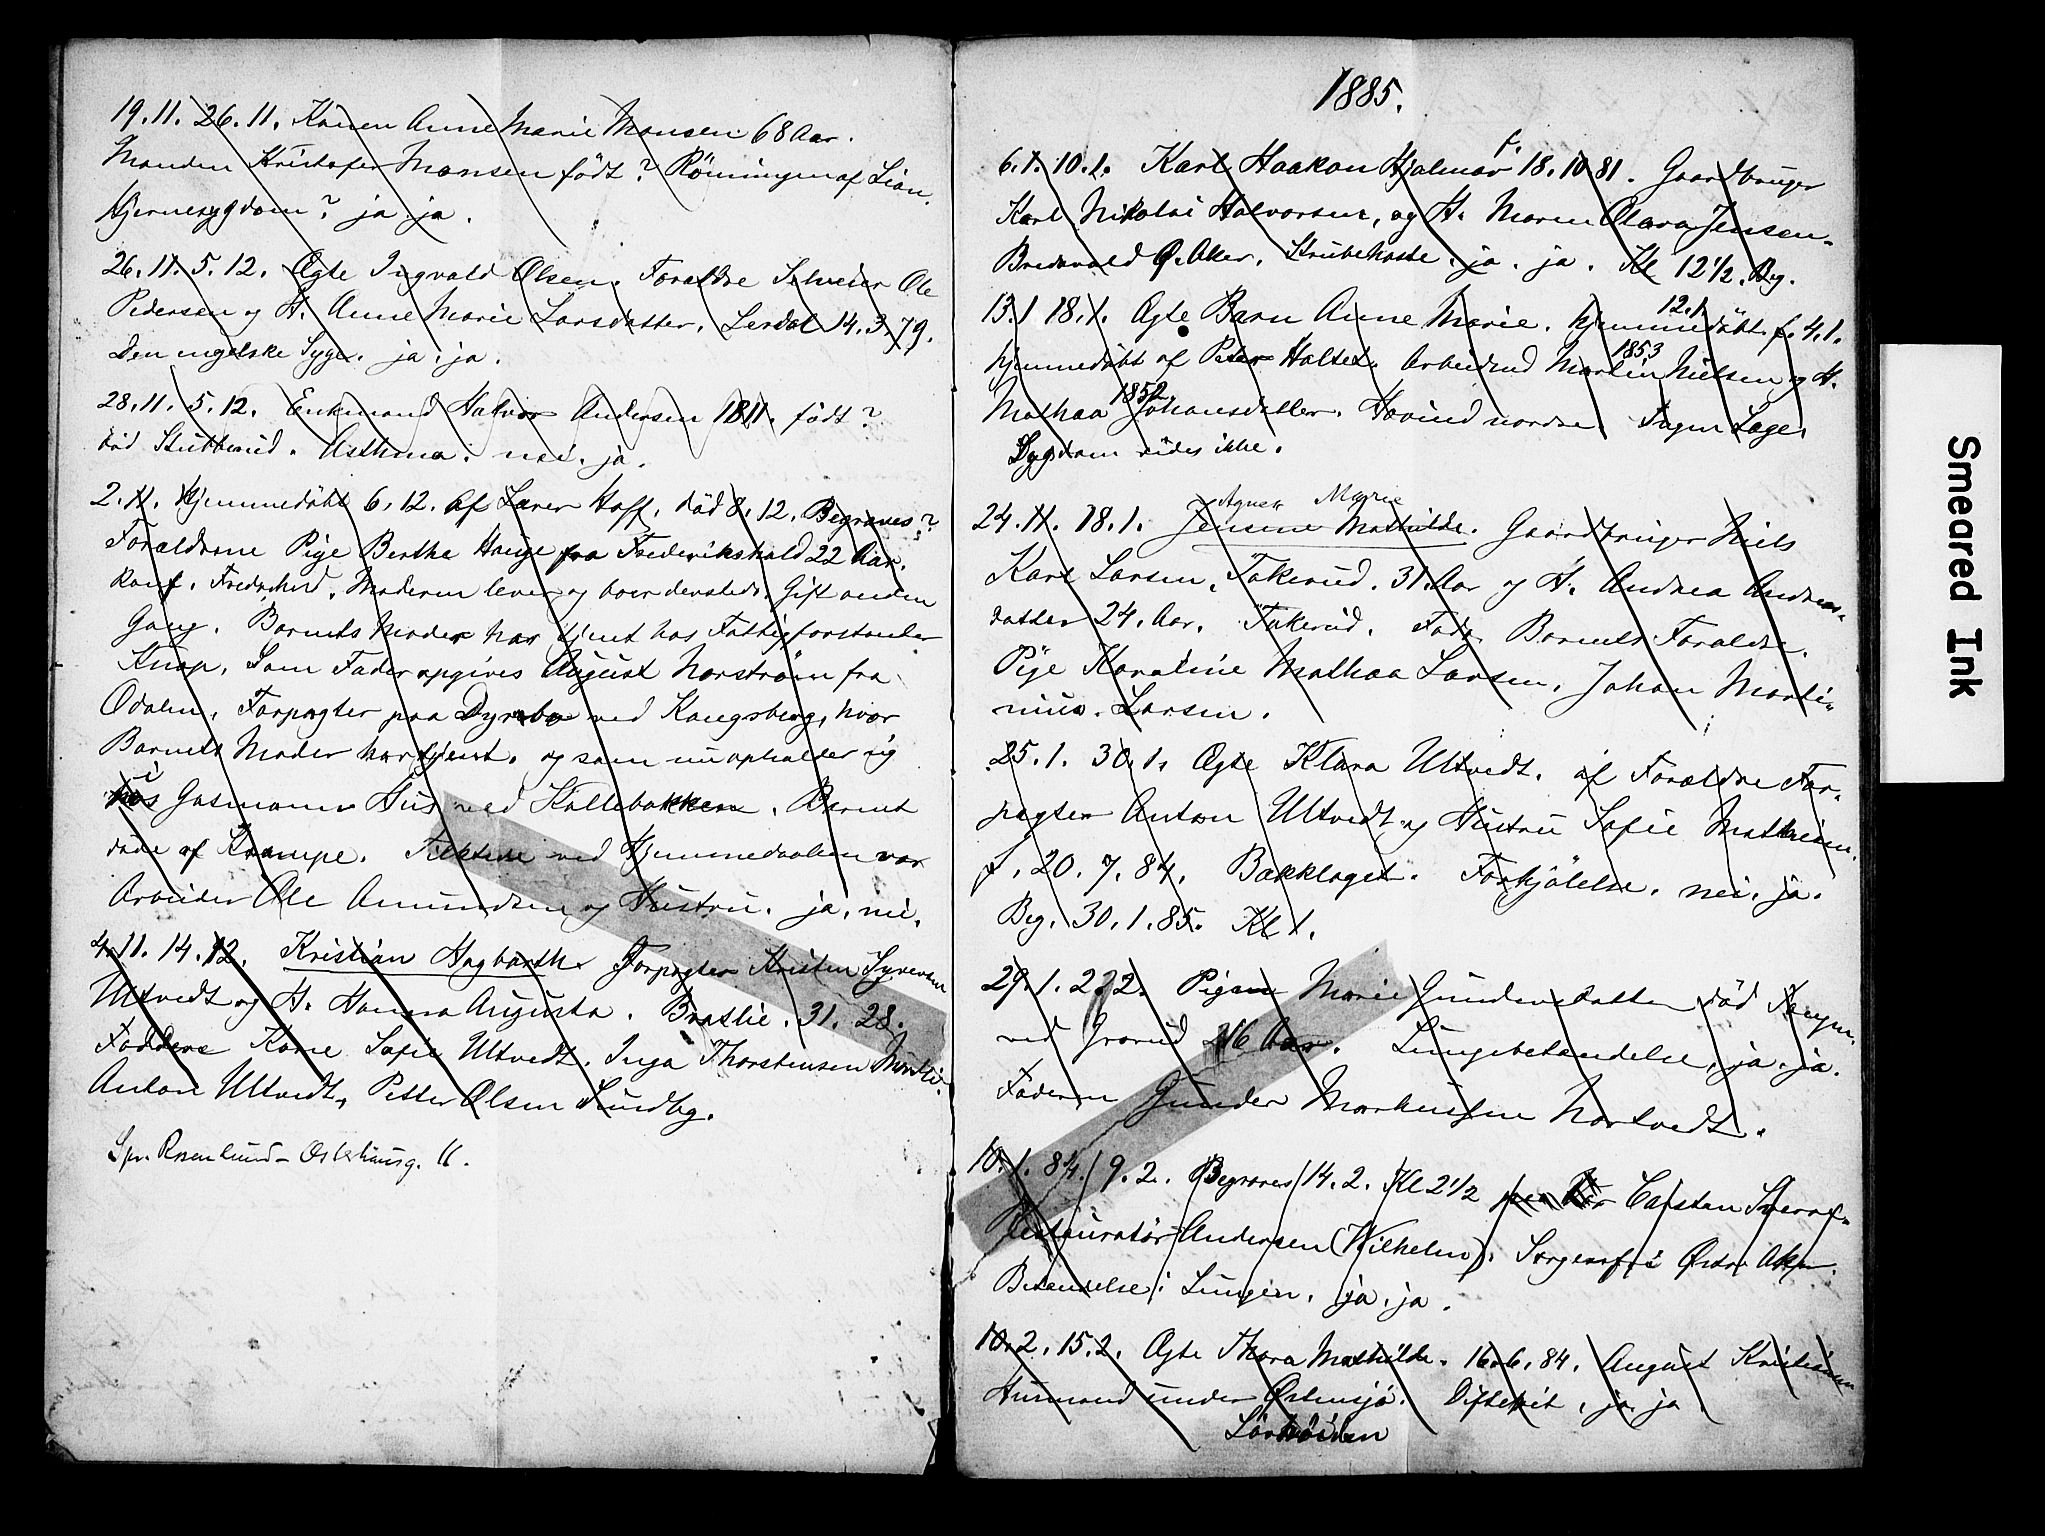 19.11. 26.11. Konen Anne Marie Monsen 68 Aar.
Manden Kristofer Monsen födt? Röningen af Lian.
Hjernesygdom? ja ja.
26.11. 5.12. Ægte Ingvald Olsen. Forældre Selveier Ole
Pedersen og H. Anne Marie Larsdatter. Lerdal 14.3.79.
Den engelske Syge. ja. ja.
28.11. 5.12. Enkemand Halvor Andersen 1811. födt?
död Stubberud. Asthma. nei. ja.
2.11. Hjemmedöbt 6.12. af Lærer Hoff. död 8.12. Begraves?
Forældrene Pige Berthe Hauge fra Frederikshald 22 Aar.
Konf. Fredrikshld. Moderen lever og boer dersteds. Gift anden
Gang. Barnets Moder har tjent hos Fattigforstander
Knap. Som Fader opgives August Norström fra
Odalen, Forpagter paa Dyrebo ved Kongsberg, hvor
Barnets Moder har tjent. og som nu opholder sig
i
hos Gasmanns Hus ved Kallebakken. Barnet
döde af Krampe. Tilstede ved Hjemmedaaben var
Arbeider Ole Amundsen og Hustru. ja. nei.
4.11. 14.12. Kristian Hagbarth. Forpagter Kristen Syversen
Ultvedt og H. Hanna Augusta. Bratlie. 31. 28.
Faddere Kone Sofie Ultvedt. Inga Thorstensen
Anton Ultvedt, Petter Olsen Sundby.
Spr. Rosenlund - Osterhausg. 11.
1885.
f.
6.1. 10.1. Karl Haakon Hjalmar 18.10 81. Gaardbruger
Karl Nikolai Halvorsen, og H. Maren Olava Jensen.
Bredevold Ø. Aker. Strubehoste. ja. ja. Kl 12½. Beg.
12.1
13.1 18.1. Ægte Barn Anne Marie. hjemmedöbt f. 4.1.
1853
hjemmedöbt af Peter Haltet. Arbeidsmd Martin Nielsen og H.
1852
Mathea Johansdatter. Hovind nordre. Ingen Læge.
Sygdom vides ikke.
Agnes Marie
24.11. 18.1. Jensine Mathilde. Gaardbruger Niels
Karl Larsen, Fakerud. 31. Aar og H. Andrea Andreas-
datter 24. Aar. Fakerud. Fadr. Barnets Forældre.
Pige Karoline Mathea Larsen, Johan Marti-
nius. Larsen.
25.1. 30.1. Ægte Klara Ultvedt. af Forældre For-
pagter Anton Ultvedt og Hustru Sofie Mathisen.
f. 20.7.84. Bakklaget. Forkjölelse. nei. ja.
Beg. 30.1.85. Kl 1.
29.1. 2.2. Pigen Marie Gundersdatter död
ved Grorud 26 Aar. Lungebetændelse. ja. ja.
Faderen Gunder Markussen Nortvedt.
10.1. 84. 9.2. Begraves 14.2. Kl 2½ Carsten
Restauratör Andersen (Wilhelm). Sorgenfri Østre Aker.
Betændelse i Lungen. ja. ja.
10.2. 15.2. Ægte Thora Mathilde. 16.6.84. August Kristiansen
Husmand under Østensjö. Difterit. ja. ja
Smeared Ink